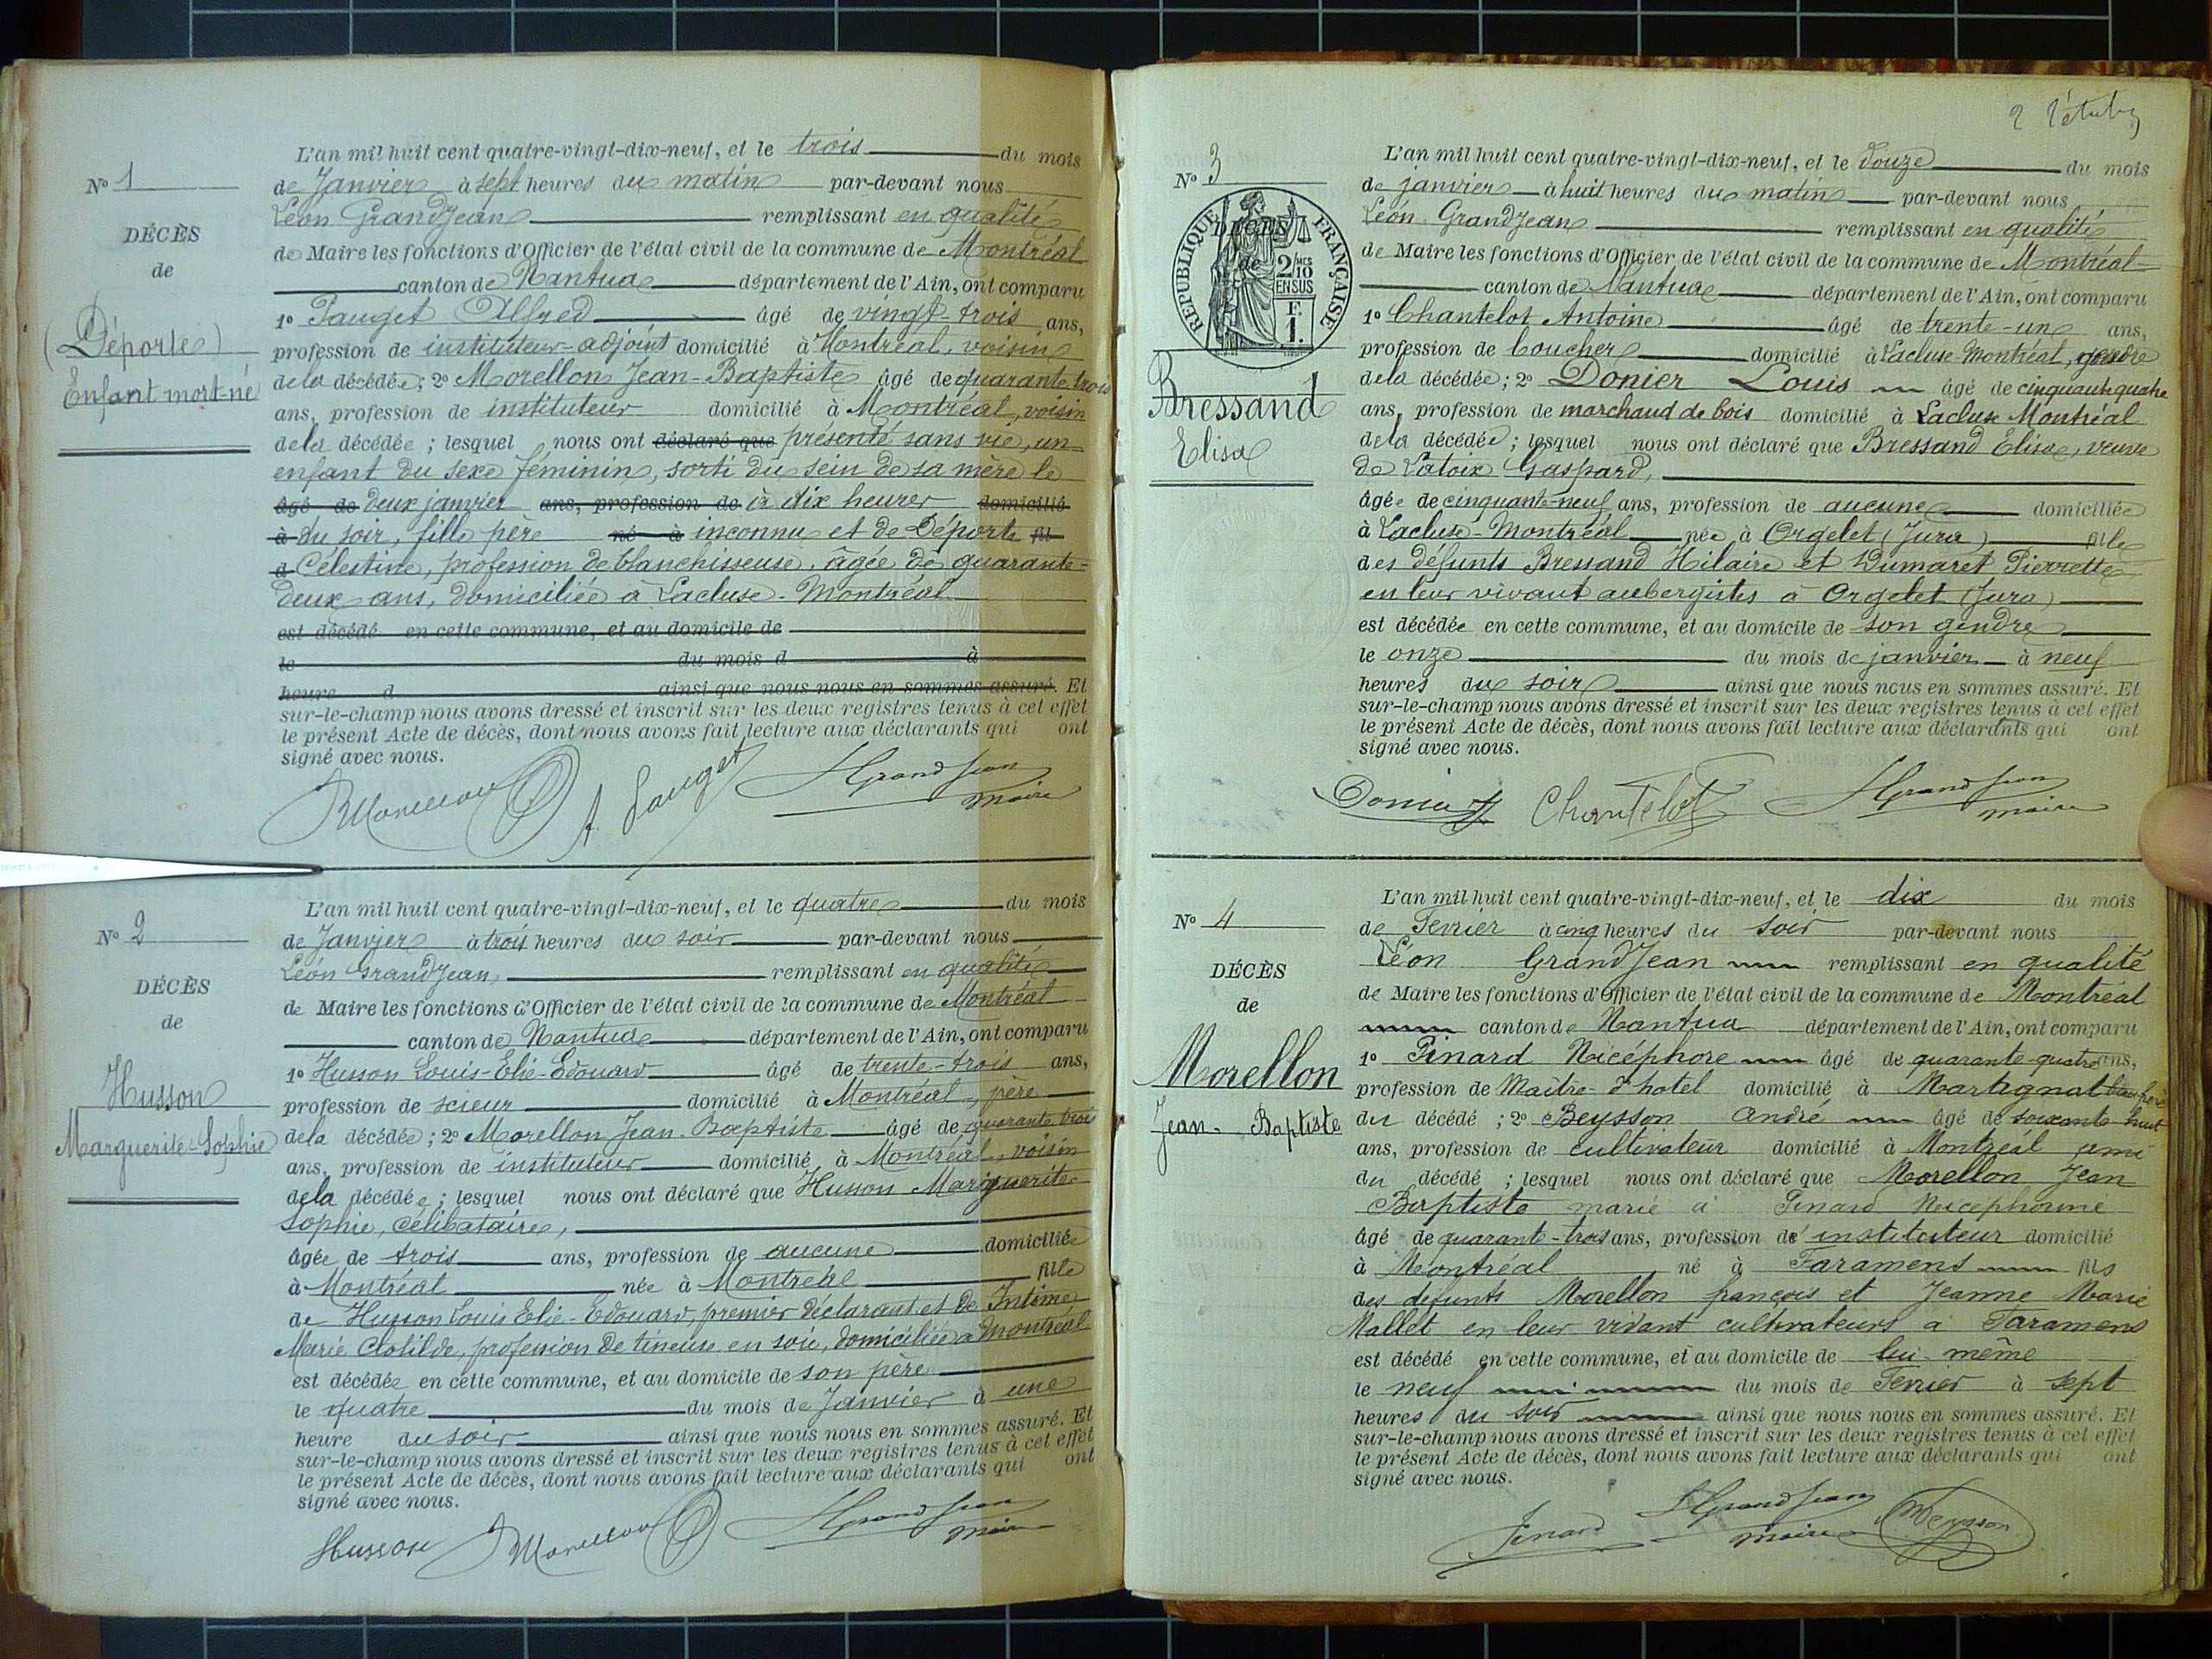 L'an mil huit cent quatre-vingt-dix-neuf, et le trois du mois
Nº 1
de Janvier à sept heures du matin par-devant nous
Léon Grandjean remplissant en qualité
DÉCÈS
de Maire les fonctions d'Officier de l'état civil de la commune de Montréal
de
canton de Nantua département de l'Ain, ont comparu
1º Pauget Alfred âgé de vingt-trois ans,
(Déporte)
profession de instituteur-adjoint domicilié à Montréal, voisin
Enfant mort-né
de la décédée; 2º Morellon Jean-Baptiste âgé de quarante trois
ans, profession de instituteur domicilié à Montréal, voisin
de la décédée; lesquel nous ont déclaré que présenté sans vie, un
enfant du sexe féminin, sorti du sein de sa mère le
âgé de deux janvier ans, profession de à dix heures domicilié
à du soir, fille père né à inconnu et de Déporte fil
d Célestine, profession de blanchisseuse, âgée de quarante-
deux ans, domiciliée à Lacluse-Montréal
est décédé en cette commune, et au domicile de
le du mois d à
heure d ainsi que nous nous en sommes assuré. Et
sur-le-champ nous avons dressé et inscrit sur les deux registres tenus à cet effet
le présent Acte de décès, dont nous avons fait lecture aux déclarants qui ont
signé avec nous.
JB Morellon A. Pauget L Grandjean
maire
L'an mil huit cent quatre-vingt-dix-neuf, et le quatre du mois
Nº 2
de Janvier à trois heures du soir par-devant nous
Léon Grandjean, remplissant en qualité
DÉCÈS
de Maire les fonctions d'Officier de l'état civil de la commune de Montréal
de
canton de Nantua département de l'Ain, ont comparu
1º Husson Louis-Elie-Edouard âgé de trente-trois ans,
Husson
profession de scieur domicilié à Montréal, père
Marguerite-Sophie
de la décédée; 2º Morellon Jean-Baptiste âgé de quarante trois
ans, profession de instituteur domicilié à Montréal, voisin
de la décédée; lesquel nous ont déclaré que Husson Marguerite
Sophie, célibataire,
âgée de trois ans, profession de aucune domiciliée
à Montréal née à Montréal fille
de Husson Louis Elie-Edouard, premier déclarant et de Intème
Marie Clotilde, profession de tineuse en soie, domiciliée à Montréal
est décédée en cette commune, et au domicile de son père
le quatre du mois de Janvier à une
heure du soir ainsi que nous nous en sommes assuré. Et
sur-le-champ nous avons dressé et inscrit sur les deux registres tenus à cet effet
le présent Acte de décès, dont nous avons fait lecture aux déclarants qui ont
signé avec nous.
Husson JB Morellon L Grandjean
maire
2
L'an mil huit cent quatre-vingt-dix-neuf, et le douze du mois
Nº 3
de janvier à huit heures du matin par-devant nous
Léon Grandjean remplissant en qualité
DÉCÈS
de
RÉPUBLIQUE FRANÇAISE
2 MES
10
EN SUS
F.
1.
de Maire les fonctions d'Officier de l'état civil de la commune de Montréal
canton de Nantua département de l'Ain, ont comparu
1º Chantelot Antoine âgé de trente-un ans,
profession de boucher domicilié à Lacluse-Montréal, gendre
Bressand
Elisa
de la décédée; 2º Donier Louis âgé de cinquante quatre
ans, profession de marchand de bois domicilié à Lacluse Montréal
de la décédée; lesquel nous ont déclaré que Bressand Elisa, veuve
de Latoix Gaspard,
âgée de cinquante-neuf ans, profession de aucune domiciliée
à Lacluse-Montréal née à Orgelet (Jura) fille
des défunts Bressand Hilaire et Dumaret Pierrette
en leur vivant aubergistes à Orgelet (Jura)
est décédée en cette commune, et au domicile de son gendre
le onze du mois de janvier à neuf
heures du soir ainsi que nous nous en sommes assuré. Et
sur-le-champ nous avons dressé et inscrit sur les deux registres tenus à cet effet
le présent Acte de décès, dont nous avons fait lecture aux déclarants qui ont
signé avec nous.
Donier Chantelot L Grandjean
maire
L'an mil huit cent quatre-vingt-dix-neuf, et le dix du mois
Nº 4
de Fevrier à cinq heures du soir par-devant nous
Léon Grandjean remplissant en qualité
DÉCÈS
de Maire les fonctions d'Officier de l'état civil de la commune de Montréal
de
canton de Nantua département de l'Ain, ont comparu
1º Pinard Nicéphore âgé de quarante-quatre ans,
Morellon
profession de Maître-d'hotel domicilié à Martignat beau-frère
Jean-Baptiste
du décédé; 2º Beysson André âgé de soixante huit
ans, profession de cultivateur domicilié à Montréal ami
du décédé; lesquel nous ont déclaré que Morellon Jean
Baptiste marié à Pinard
âgé de quarante-trois ans, profession d' instituteur domicilié
à Montréal né à Faramens fils
des défunts Morellon françois et Jeanne Marie
Mallet en leur vivant cultivateurs à Faramens
est décédé en cette commune, et au domicile de lui-même
le neuf du mois de Fevrier à sept
heures du soir ainsi que nous nous en sommes assuré. Et
sur-le-champ nous avons dressé et inscrit sur les deux registres tenus à cet effet
le présent Acte de décès, dont nous avons fait lecture aux déclarants qui ont
signé avec nous.
Pinard L Grandjean Beysson
maire